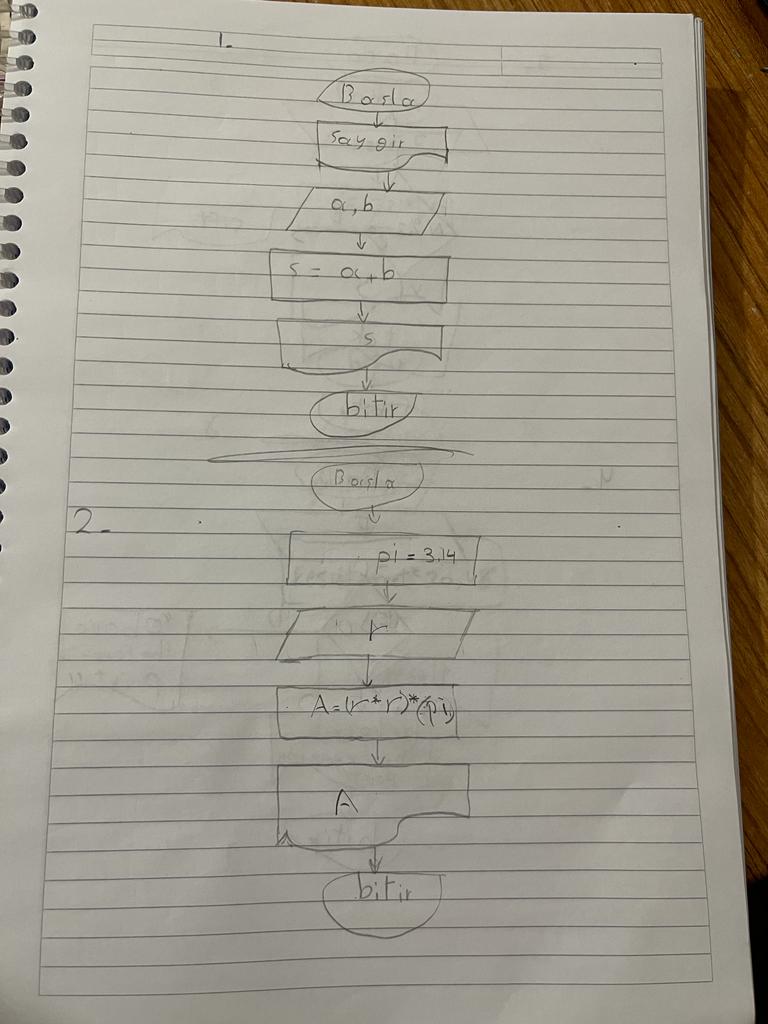 1.
Basla
say gir
a, b
s = a + b
s
bitir
Basla
2-
pi = 3.14
r
A = (r * r) * (pi)
A
bitir